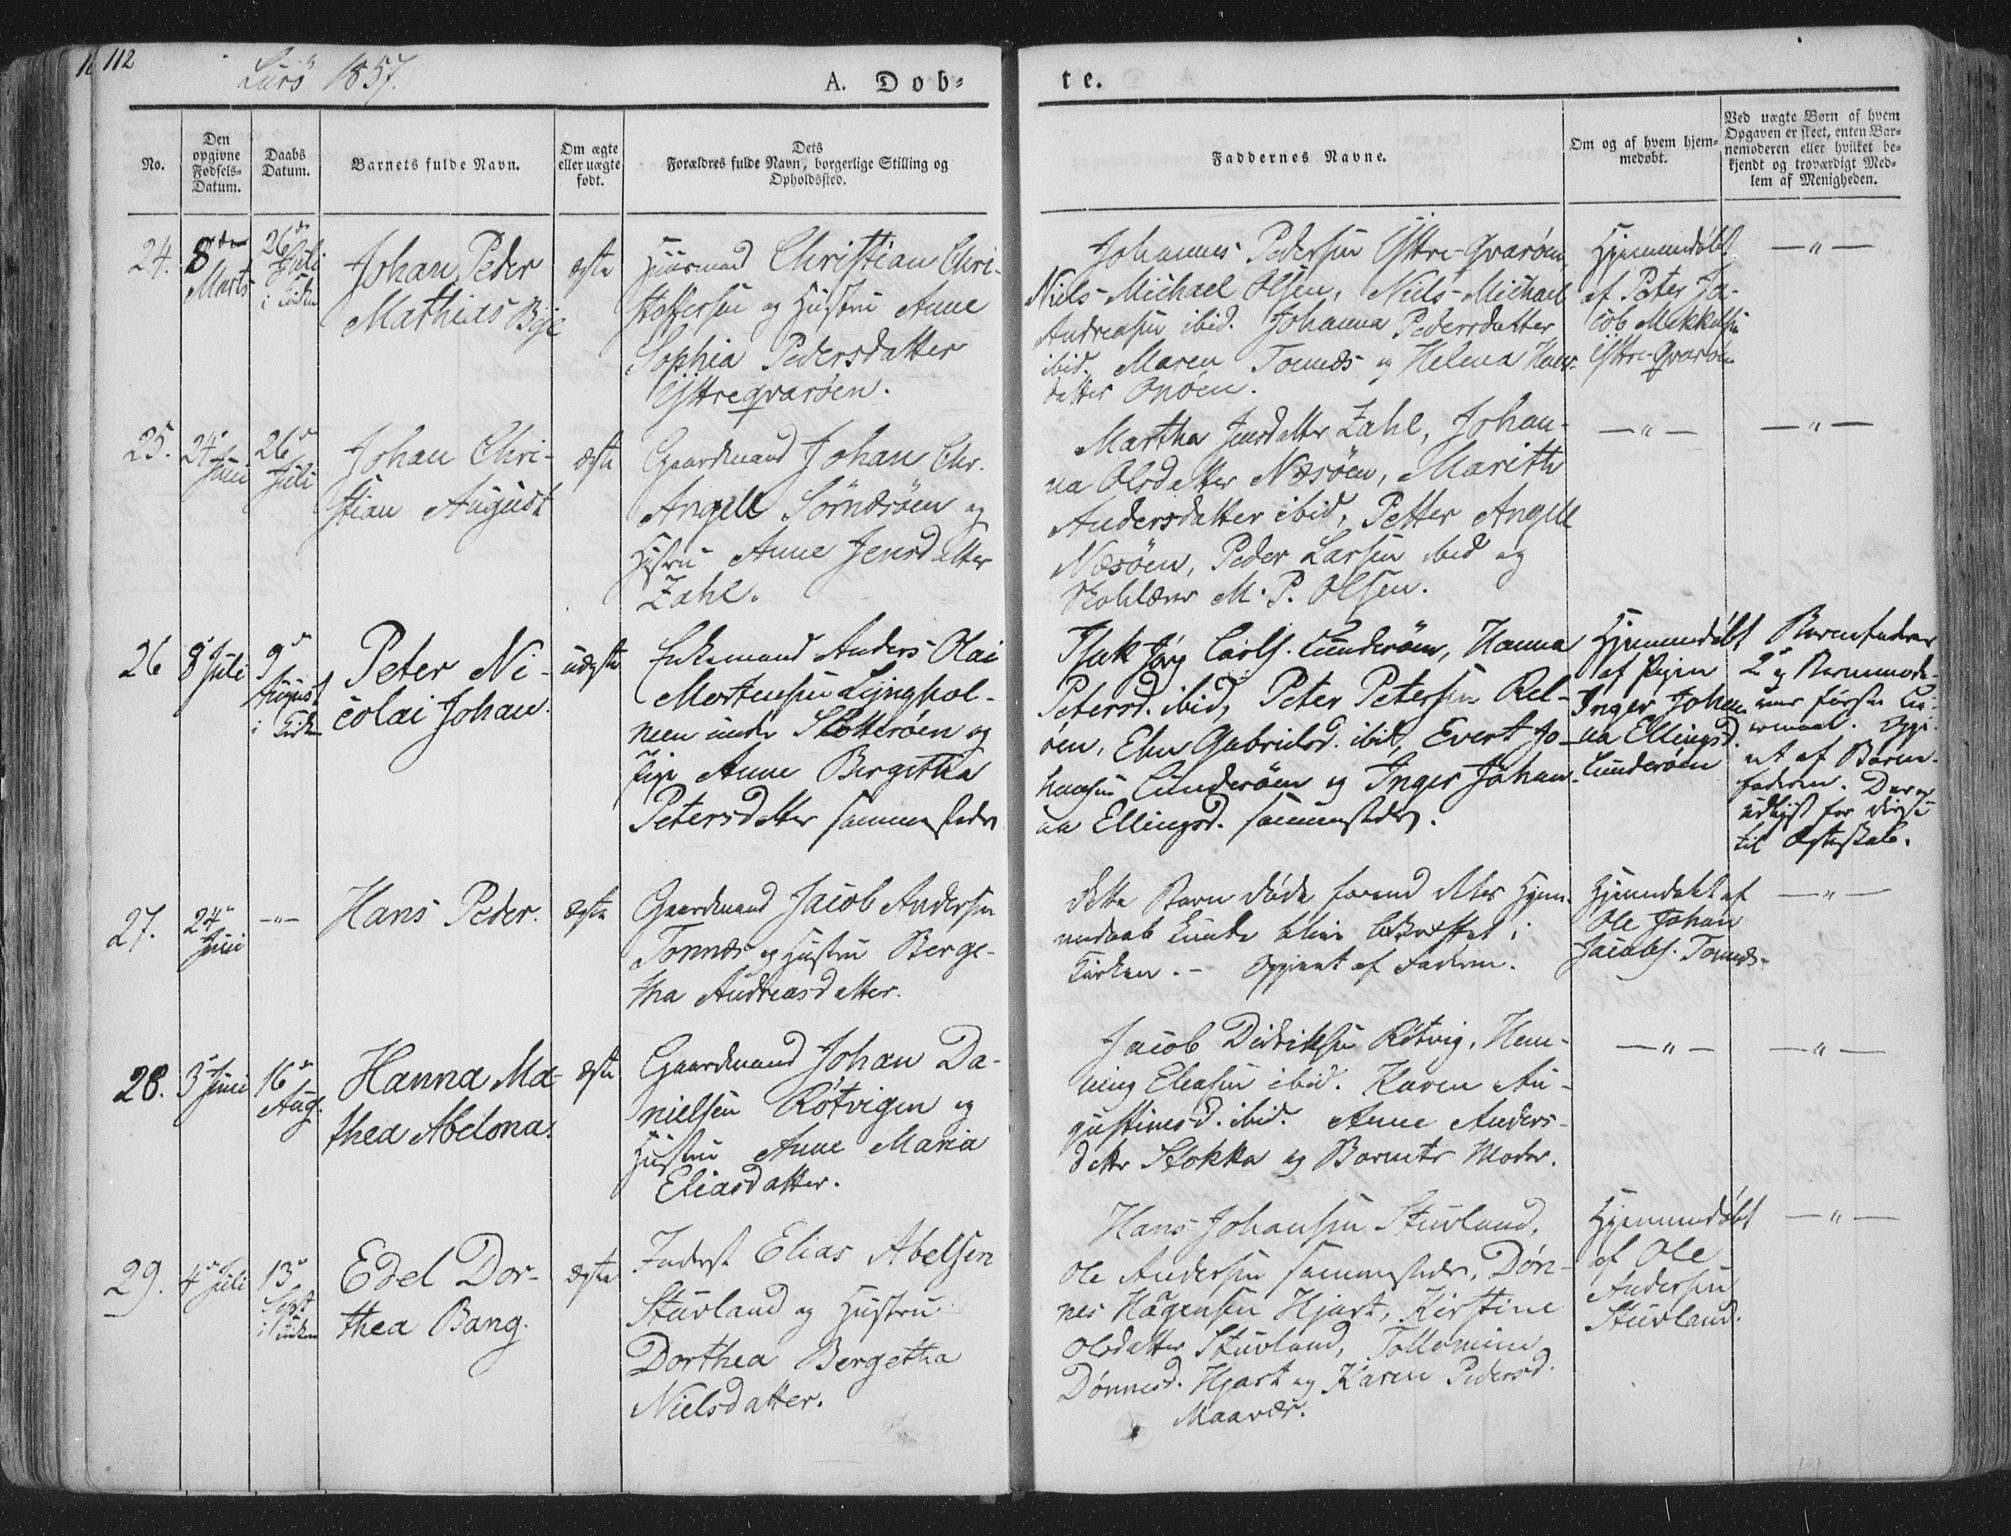 112
Lurö 1857.
A. Døb-
te.
No.
Den
opgivne
Fødsels-
Datum.
Daabs
Datum.
Barnets fulde Navn.
Om ægte
eller uægte
født.
Dets
Forældres fulde Navn, borgerlige Stilling og
Opholdssted.
Faddernes Navne.
Om og af hvem hjem-
medøbt.
Ved uægte Børn af hvem
Opgaven er skeet, enten Bar-
nemoderen eller hvilket be-
kjendt og troværdigt Med-
lem af Menigheden.
24.
8de
Marts
26de
Juli
i Kirken
Johan Peder
Mathias
ægte
Huusmand Christian Chri-
stoffersen og Hustru Anne
Sophia Pedersdatter
Yttreqvarøen.
Johannes Pedersen Yttre-qvarøen
Niels-Michael Olsen, Niels-Michael
Andreasen ibid. Johanna Pedersdatter
ibid. Maren Tonnæs og Helena Hans-
datter Onøen.
Hjemmedøbt
af Peter Ja-
cob Mikkelsen
Yttre-qvarøen
—"—
25.
24
Juni
26
Juli
Johan Chri-
stian August
ægte
Gaardmand Johan Chr.
Angell Sörnæsøen og
Hustru Anne Jensdatter
Zahl.
Martha Jensdatter Zahl, Johan-
na Olsdatter Næsøen, Marith
Andersdatter ibid, Petter Angell
Næsøen, Peder Larsen ibid og
Skolelærer M. P. Olsen.
—"—
—"—
26
8 Juli
9
August
i Kirken
Peter Ni-
colai Johan.
uægte
Enkemand Anders Olai
Mortensen Lynghol-
men under Slotterøen og
Pige Anne Bergitha
Petersdatter sammesteder
Isak Jörg Carls. Lunderøen, Hanna
Petersd. ibid, Peter Petersen Rel-
øen, Elen Gabrielsd. ibid, Evert Jo-
hansen Lunderøen og Inger Johan-
na Ellingsd. sammesteder.
Hjemmedøbt
af Pigen
Inger Johan-
na Ellingsd.
Lunderøen
Barnefaderens
2 og Barnemode-
rens første Lei-
ermaal. Opgi-
vet af Barne-
faderen. Der er
udlyst for disse
til Ægteskab.
27.
24
Juni
—"—
Hans Peder.
ægte
Gaardmand Jacob Andersen
Tonnæs og Hustru Berge-
tha Andreasdatter.
Dette Barn døde forend dets Hjem-
medaab kunde blive bekræftet i
Kirken. - Opgivet af Faderen.
Hjemdøbt af
Ole Johan
Jacobs. Tonnæs-
—"—
28.
3 Juni
16
Aug.
Hanna Ma-
thea Abelona.
ægte
Gaardmand Johan Da-
nielsen Røtvigen og
Hustru Anne Maria
Eliasdatter.
Jacob Didriksen Røtvig, Hen-
ning Eliasen ibid. Karen Au-
gustinusd. ibid. Anne Anders-
datter Stokka og Barnets Moder.
—"—
—"—
29.
4 Juli
13
Sept
i Kirken
Edel Dor-
thea Bang.
ægte
Inderst Elias Abelsen
Stuvland og Hustru
Dorthea Bergetha
Nielsdatter.
Hans Johansen Stuvland,
Ole Andersen sammesteder, Døn-
nes Hagensen Hjart, Kirstine
Olsdatter Stuvland, Tollomine
Dønnesd. Hjart og Karen Pedersd.
Maavær.
Hjemmedøbt
af Ole
Andersen
Stuvland.
—"—